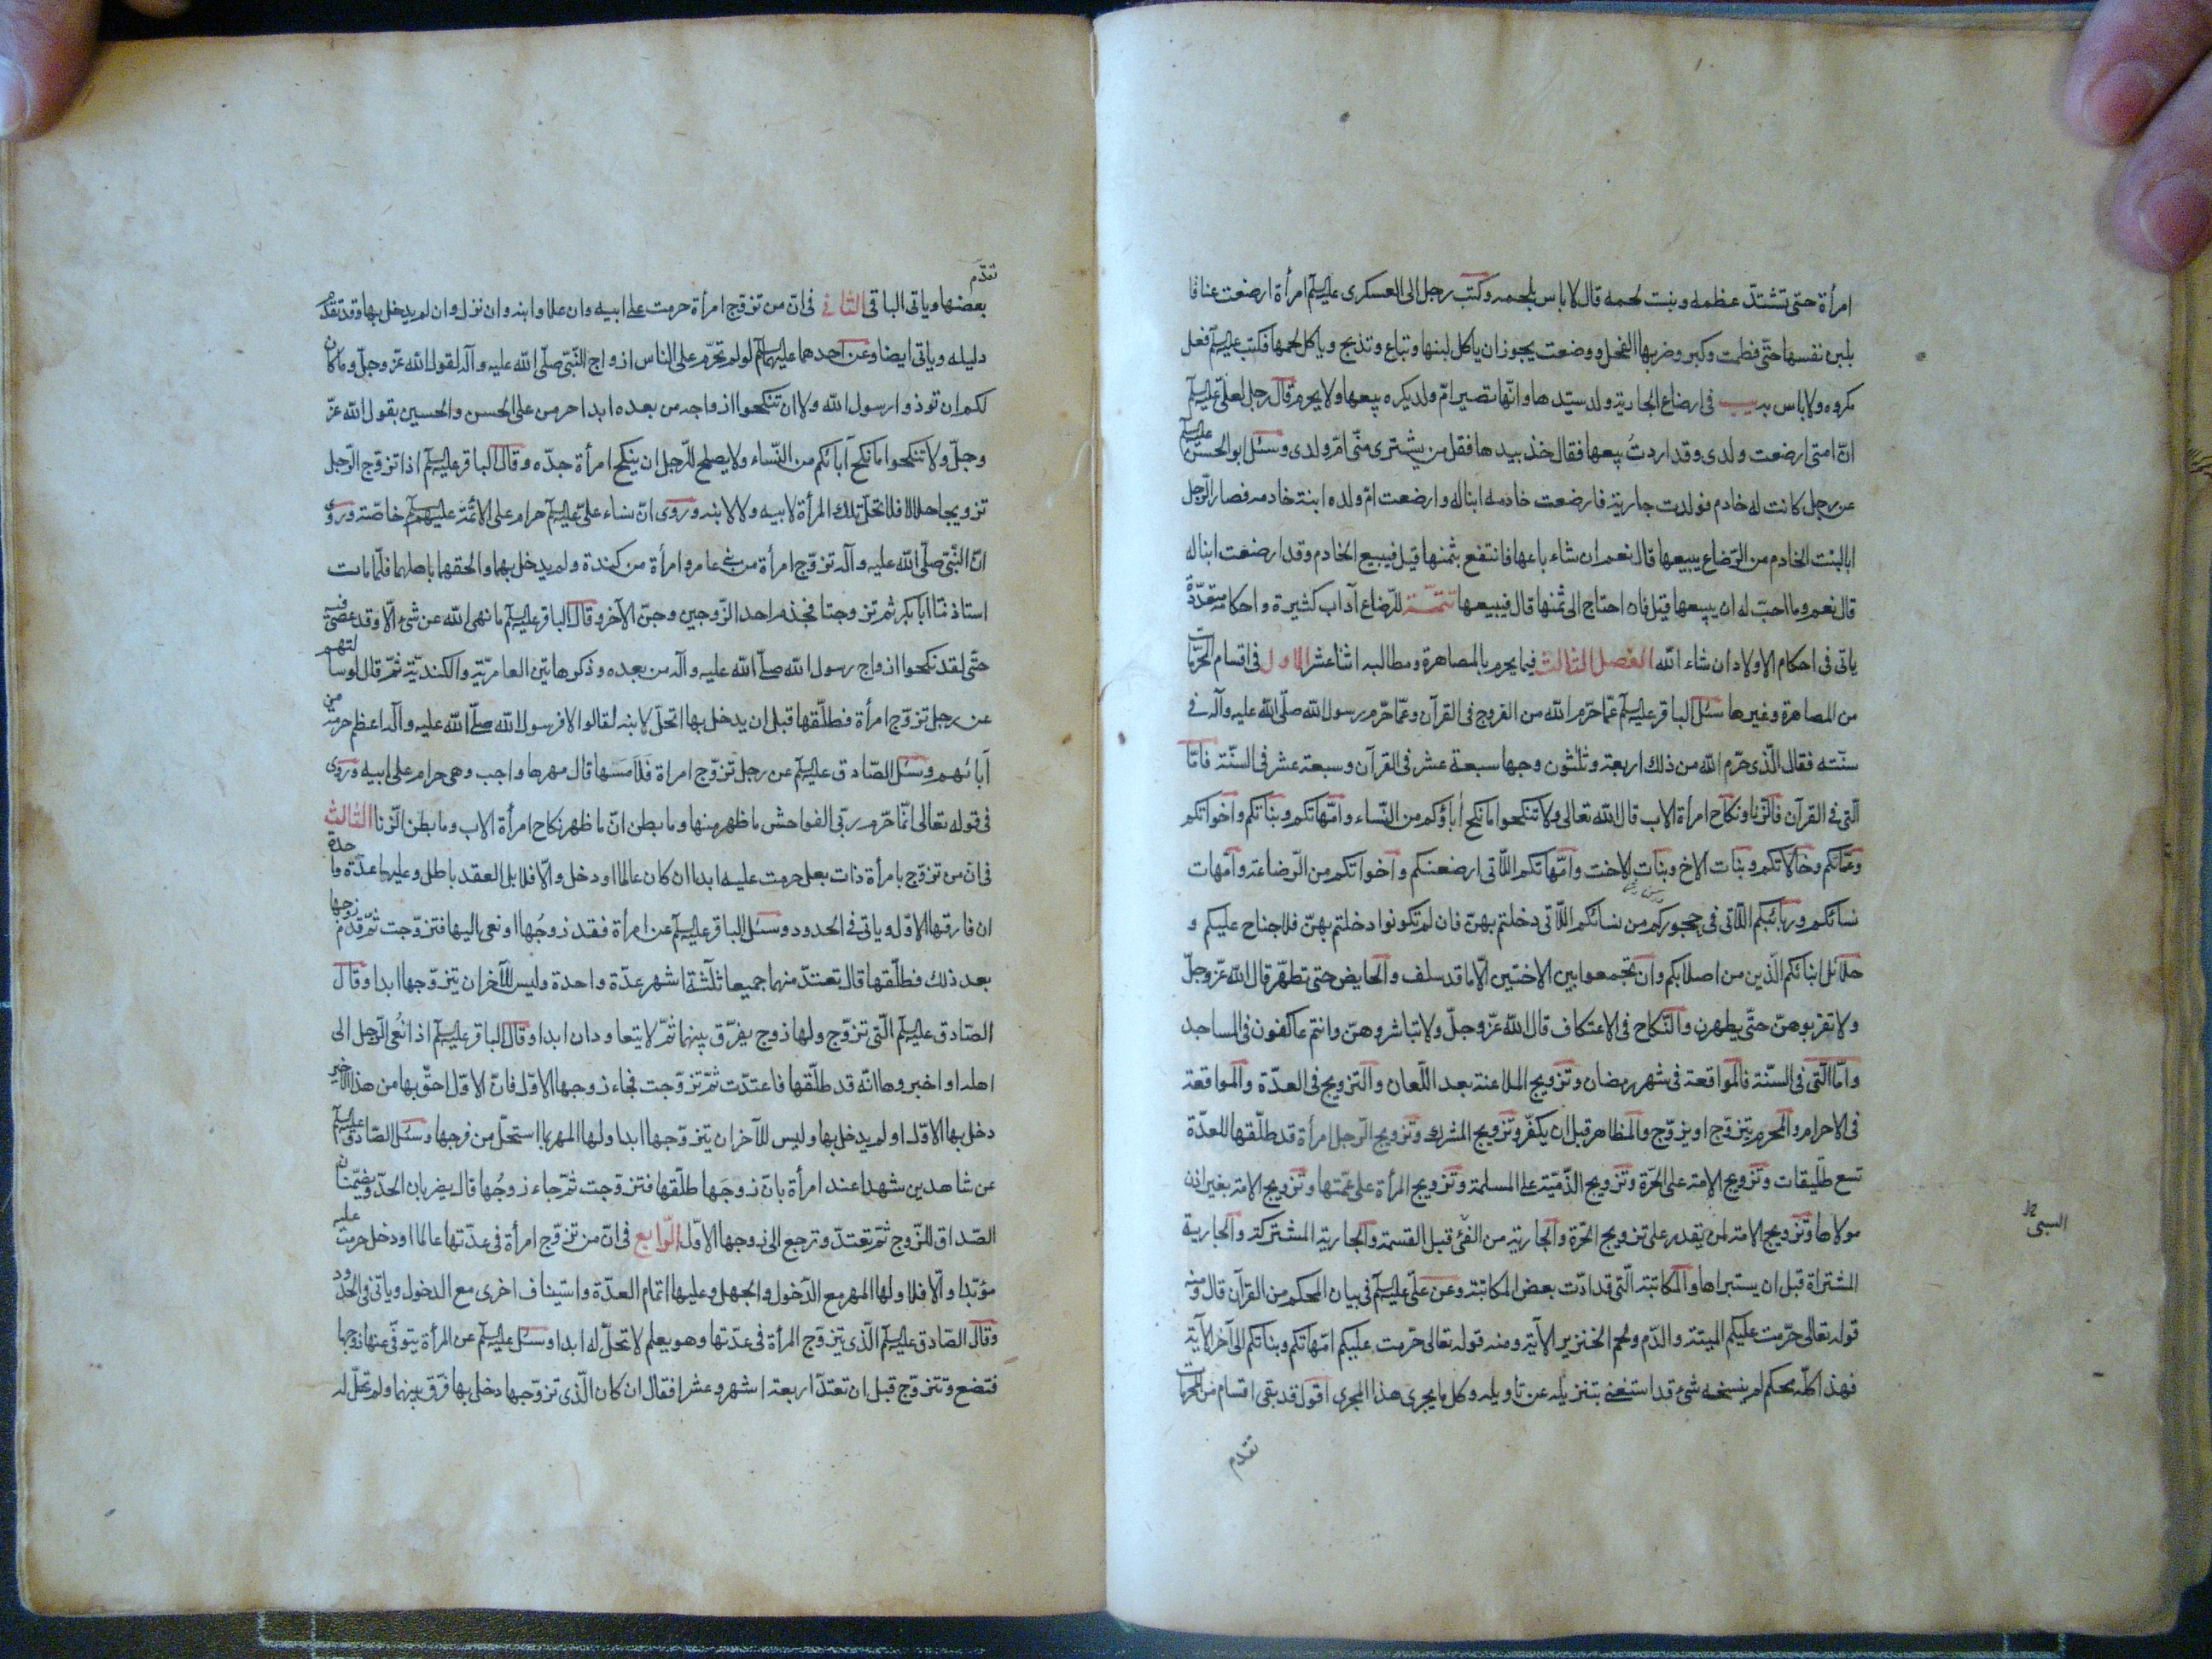 امرأة حتى تشتدّ عظمه وينبت لحمه قال لا باس بلحمه وكتب رجل الى العسكرى عليه السلم امرأة ارضعت عناقا
بلبن نفسها حتّى فطمت وكبر وضربها الفحل ووضعت يجوز ان ياكل لبنها وتباع وتذبح وياكل لحمها فكتب عليه السلم فعل
مكروه ولا باس به يب فى ارضاع الجارية ولد سيّدها وانّها تصير امّ ولد يكره بيعها ولا يحرم قال رجل لعلىّ عليه السلم
انّ امتى ارضعت ولدى وقد اردتُ بيعها فقال خذ بيدها فقل من يشترى منّى امّ ولدى وسئل ابو الحسن عليه السلم
عن رجل كانت له خادم فولدت جارية فارضعت خادمه ابنا له وارضعت امّ ولده ابنة خادمه فصار الرّجل
ابا لبنت الخادم من الرّضاع يبيعها قال نعم ان شاء باعها فانتفع بثمنها قيل فيبيع الخادم وقد ارضعت ابنا له
قال نعم وما احبّ له ان يبيعها قيل فان احتاج الى ثمنها قال فيبيعها تتمّة للرّضاع آداب كثيرة واحكام متعدّدة
ياتى فى احكام الاولاد ان شاء الله الفصل الثالث فيما يحرم بالمصاهرة ومطالبه اثنا عشر الاول فى اقسام المحرّمات
من المصاهرة وغيرها سئل الباقر عليه السلم عمّا حرّم الله من الفروج فى القرآن وعمّا حرّم رسول الله صلّى الله عليه وآله فى
سنّته فقال الّذى حرّم الله من ذلك اربعة وثلثون وجها سبعة عشر فى القرآن وسبعة عشر فى السنّة فامّا
الّتى فى القرآن فالزّنا ونكاح امرأة الاب قال الله تعالى ولا تنكحوا ما نكح آباؤكم من النّساء وامّهاتكم وبناتكم واخواتكم
وعمّاتكم وخالاتكم وبنات الاخ وبنات الاخت وامّهاتكم اللّاتى ارضعنكم واخواتكم من الرّضاعة وامّهات
نسائكم وربائبكم اللّاتى فى حجوركم من نسائكم اللّاتى دخلتم بهنّ فان لم تكونوا دخلتم بهنّ فلا جناح عليكم و
حلائل ابنائكم الّذين من اصلابكم وان تجمعوا بين الاختين الّا ما قد سلف والحايض حتى تطهّر قال الله عزّ وجلّ
ولا تقربوهنّ حتّى يطهرن والنّكاح فى الاعتكاف قال الله عزّ وجلّ ولا تباشروهنّ وانتم عاكفون فى المساجد
وامّا الّتى فى السنّة فالمواقعة فى شهر رمضان وتزويج الملاعنة بعد اللّعان والتزويج فى العدّة والمواقعة
فى الاحرام والمحرم يتزوّج او يزوّج والمظاهر قبل ان يكفّر وتزويج المشرك وتزويج الرّجل امرأة قد طلّقها للعدّة
تسع طليقات وتزويج الامة على الحرّة وتزويج الذّمّيّة على المسلمة وتزويج المرأة على عمّتها وتزويج الامة بغير اذن
مولاها وتزويج الامة لمن يقدر على تزويج الحّرة والجارية من الفئ قبل القسمة والجارية المشتركة والجارية
السبى
المشتراة قبل ان يستبراها والمكاتبة الّتى قد ادّت بعض المكاتبة وعن علّى عليه السلم فى بيان المحكم من القرآن قال ومنه
قوله تعالى حرّمت عليكم الميتة والدّم ولحم الخنزير الآية ومنه قوله تعالى حرّمت عليكم امّهاتكم وبناتكم الى آخر الآية
فهذا كلّه محكم لم ينسخه شئ قد استغنى بتنزيله عن تاويله وكل ما يجرى هذا المجرى اقول قد بقى اقسام من المحرمات
تقدم
تقدّم
بعضها وياتى الباقى الثانى فى انّ من تزوّج امرأة حرمت على ابيه وان علا وابنه وان نزل وان لم يدخل بها وقد تقدّم
دليله وياتى ايضا وعن احدهما عليهما السلم لو لم تحرّم على الناس ازواج النّبىّ صلّى الله عليه وآله لقول الله عزّ وجلّ وما كان
لكم ان توذوا رسول الله ولا ان تنكحوا ازواجه من بعده ابدا حرمن على الحسن والحسين بقول الله عزّ
وجلّ ولا تنكحوا ما نكح آبائكم من النّساء ولا يصلح للرّجل ان ينكح امرأة جدّه وقال الباقر عليه السلم اذا تزوّج الرّجل
تزويجا حلالا فلا تحلّ تلك المرأة لابيه ولا لابنه وروى انّ نساء علىّ عليه السلم حرام على الائمّة عليهم السلم خاصّة وروى
انّ النّبىّ صلّى الله عليه وآله تزوّج امرأة من بنى عامر وامرأة من كندة ولم يدخل بهما والحقهما باهلهما فلمّا مات
استاذنتا ابا بكر ثم تزوجتا فجذم احد الزّوجين وجنّ الآخر وقال الباقر عليه السلم ما نهى الله عن شئ الّا وقد عصى فيه
حتّى لقد نكحوا ازواج رسول الله صلى الله عليه وآله من بعده وذكر هاتين العامريّة والكنديّة ثمّ قال لو سالتهم
عن رجل تزوّج امرأة فطلّقها قبل ان يدخل بها اتحلّ لابنه لقالوا لا فرسول الله صلّى الله عليه وآله اعظم حرمة من
آبائهم وسئل الصّادق عليه السلم عن رجل تزوّج امراة فلامسها قال مهرها واجب وهى حرام على ابيه وروى
فى قوله تعالى انّما حرّم ربّى الفواحش ما ظهر منها وما بطن انّ ما ظهر نكاح امرأة الاب وما بطن الزّنا الثالث
فى انّ من تزوّج بامرأة ذات بعل حرمت عليه ابدا ان كان عالما او دخل والّا فلا بل العقد باطل وعليها عدّة واحدة
ان فارقها الاوّل وياتى فى الحدود وسئل الباقر عليه السلم عن امرأة فقد زوجُها او نعى اليها فتزوّجت ثمّ قدم زوجها
بعد ذلك فطلّقها قال تعتدّ منهما جميعا ثلثة اشهر عدّة واحدة وليس للآخر ان يتزوّجها ابدا وقال
الصّادق عليه السلم الّتى تزوّج ولها زوج يفرّق بينهما ثمّ لا يتعاودان ابدا وقال الباقر عليه السلم اذا نُعى الرّجل الى
اهله او اخبروها انّه قد طلّقها فاعتدّت ثمّ تزوّجت فجاء زوجها الاوّل فانّ الاوّل احقّ بها من هذا الاخير
دخل بها الاوّل او لم يدخل بها وليس للآخر ان يتزوّجها ابدا ولها المهر بما استحلّ من فرجها وسئل الصّادق عليه السلم
عن شاهدين شهدا عند امرأة بانّ زوجَها طلّقها فتزوّجت ثمّ جاء زوجُها قال يضربان الحدّ ويضمّنان
الصّداق للزّوج ثمّ تعتدّ وترجع الى زوجها الاوّل الرّابع فى انّ من تزوّج امرأة فى عدّتها عالما او دخل حرمت عليه
مؤبّدا والّا فلا ولها المهر مع الدّخول والجهل وعليها اتمام العدّة واستيناف اخرى مع الدخول وياتى فى الحدود
وقال الصّادق عليه السلم الّذى يتزوّج المرأة فى عدّتها وهو يعلم لا تحلّ له ابدا وسئل عليه السلم عن المرأة يتوفّى عنها زوجها
فتضع وتتزوّج قبل ان تعتدّ اربعة اشهر وعشرا فقال ان كان الّذى تزوّجها دخل بها فرّق بينهما ولم تحلّ له